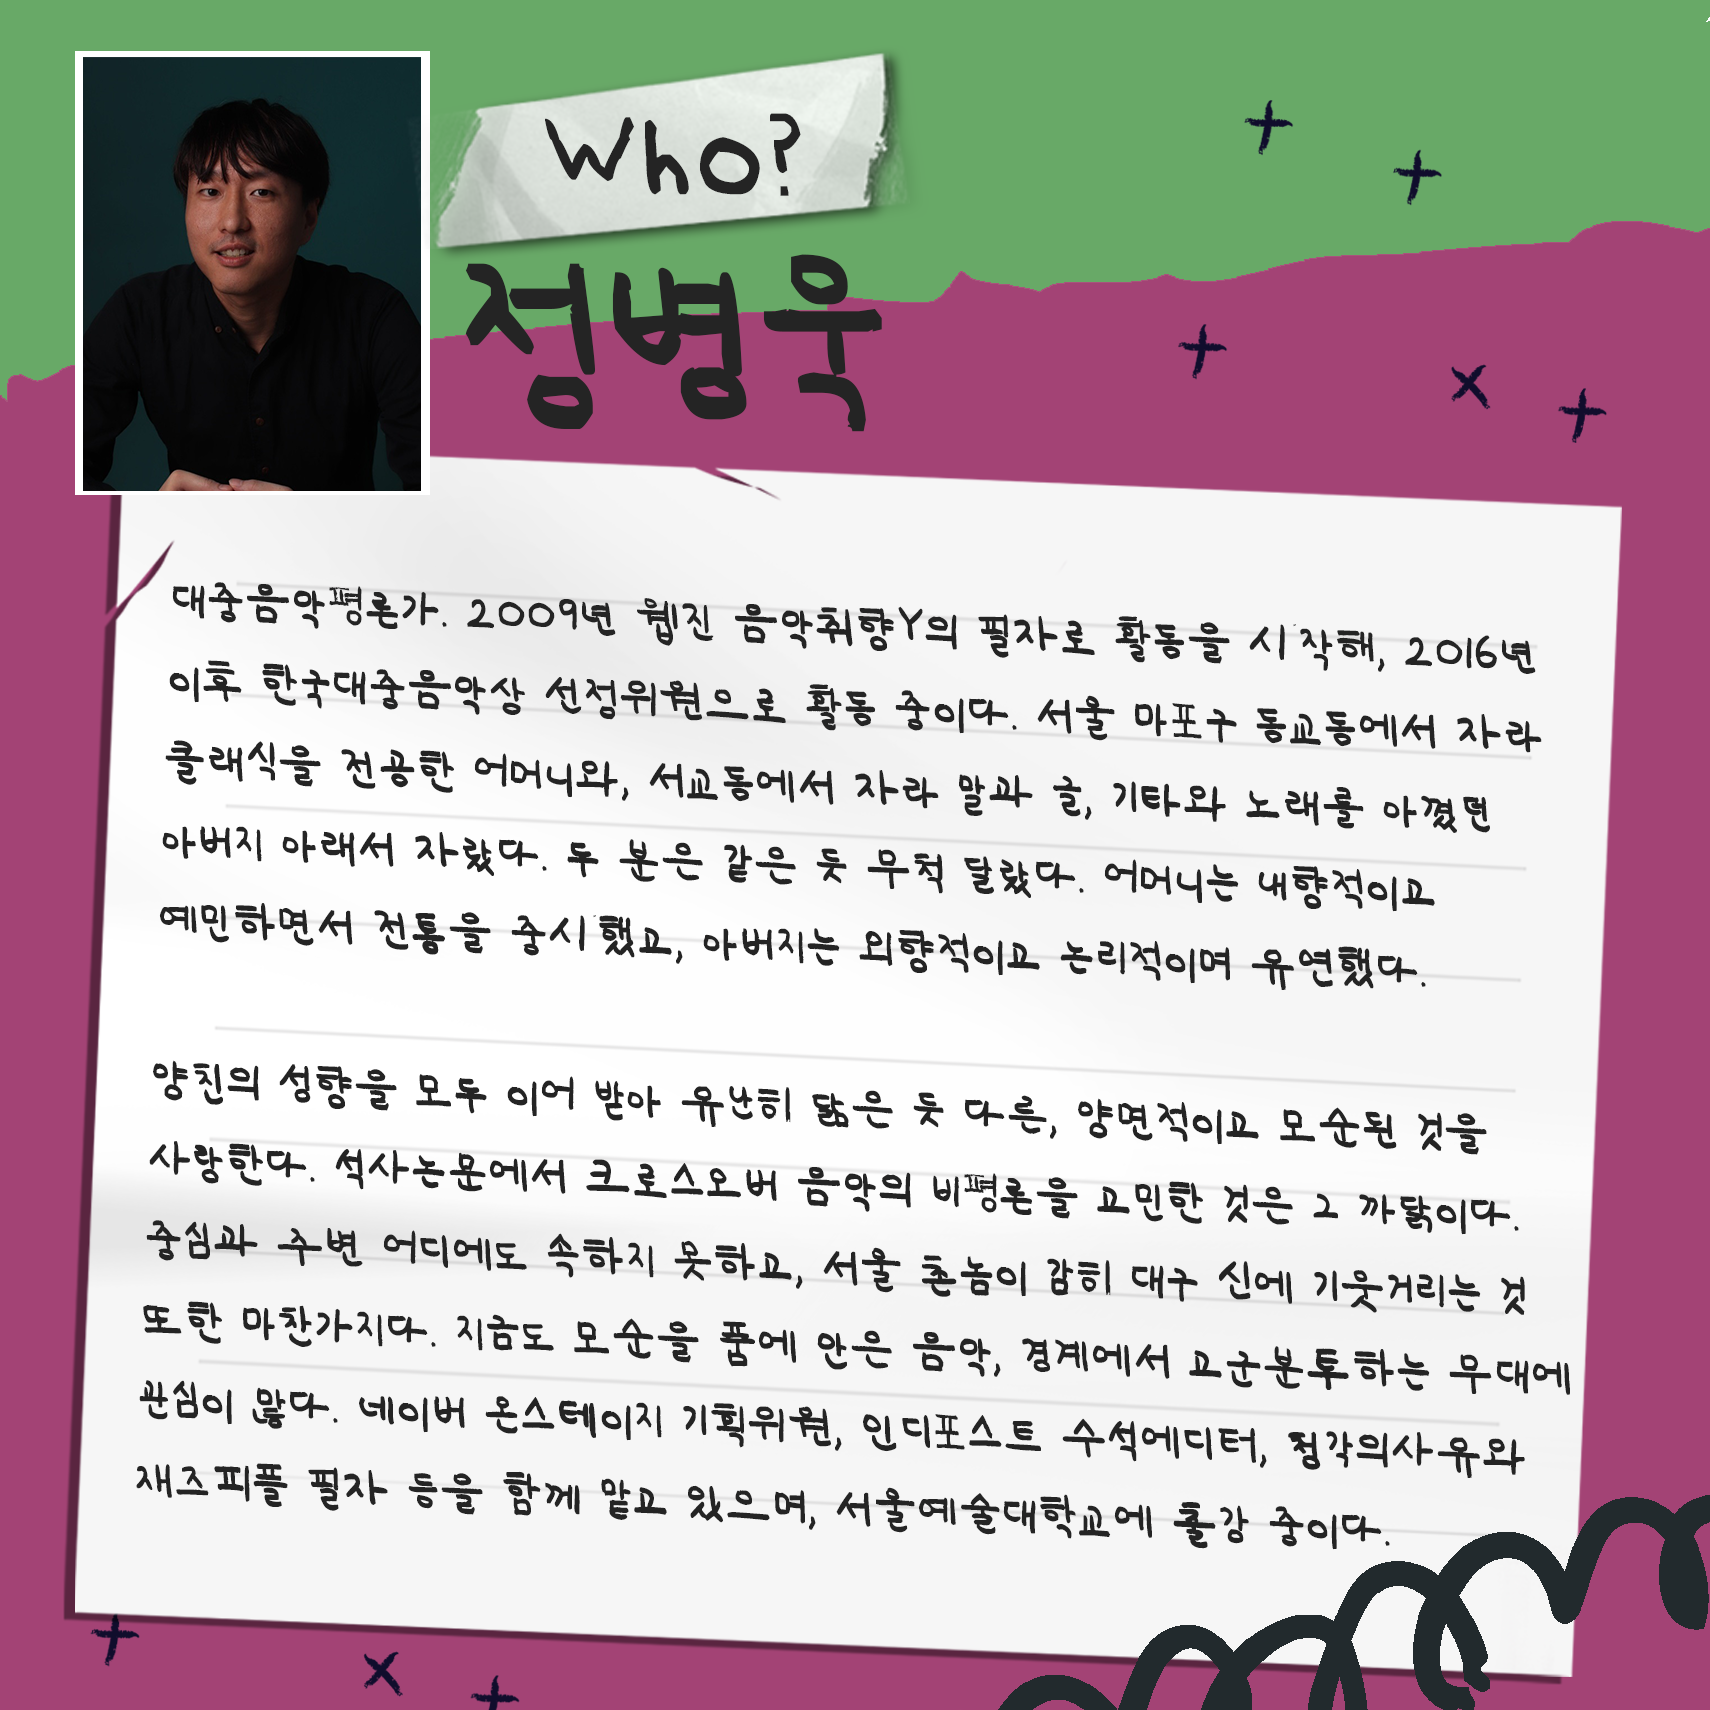 Who?
정병욱
대중음악평론가. 2009년 웹진 음악취향Y의 필자로 활동을 시작해, 2016년
이후 한국대중음악상 선정위원으로 활동 중이다. 서울 마포구 동교동에서 자라
클래식을 전공한 어머니와, 서교동에서 자라 말과 글, 기타와 노래를 아꼈던
아버지 아래서 자랐다. 두 분은 같은 듯 무척 달랐다. 어머니는 내향적이고
예민하면서 전통을 중시했고, 아버지는 외향적이고 논리적이며 유연했다.
양친의 성향을 모두 이어 받아 유난히 닮은 듯 다른, 양면적이고 모순된 것을
사랑한다. 석사논문에서 크로스오버 음악의 비평론을 고민한 것은 그 까닭이다.
중심과 주변 어디에도 속하지 못하고, 서울 촌놈이 감히 대구 신에 기웃거리는 것
또한 마찬가지다. 지금도 모순을 품에 안은 음악, 경계에서 고군분투하는 무대에
관심이 많다. 네이버 온스테이지 기획위원, 인디포스트 수석에디터, 청각의사유와
재즈피플 필자 등을 함께 맡고 있으며, 서울예술대학교에 출강 중이다.